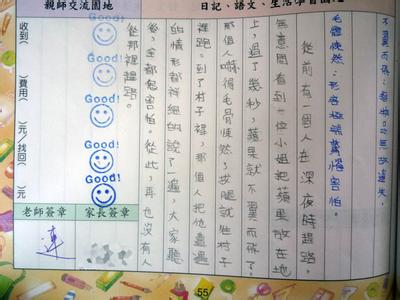 親師交流園地
日記、語文、生活學習園地
不翼而飛：無故遺失。
毛骨悚然：形容極端驚惶害怕。
從前有一個人在深夜時趕路，
無意間看到一位小姐把蘋果放在地
上，過了幾秒，蘋果就不翼而飛了，
那個人嚇得毛骨悚然，拔腿就往村子
裡跑。到了村子裡，那個人把他遭遇
的情形都詳細的說了一遍，大家聽
後，全都很害怕。從此，再也沒有人
從那裡趕路。
Good!
Good!
Good!
Good!
Good!
收到( )費用( )元/找回( )元
老師簽章
家長簽章
連
55